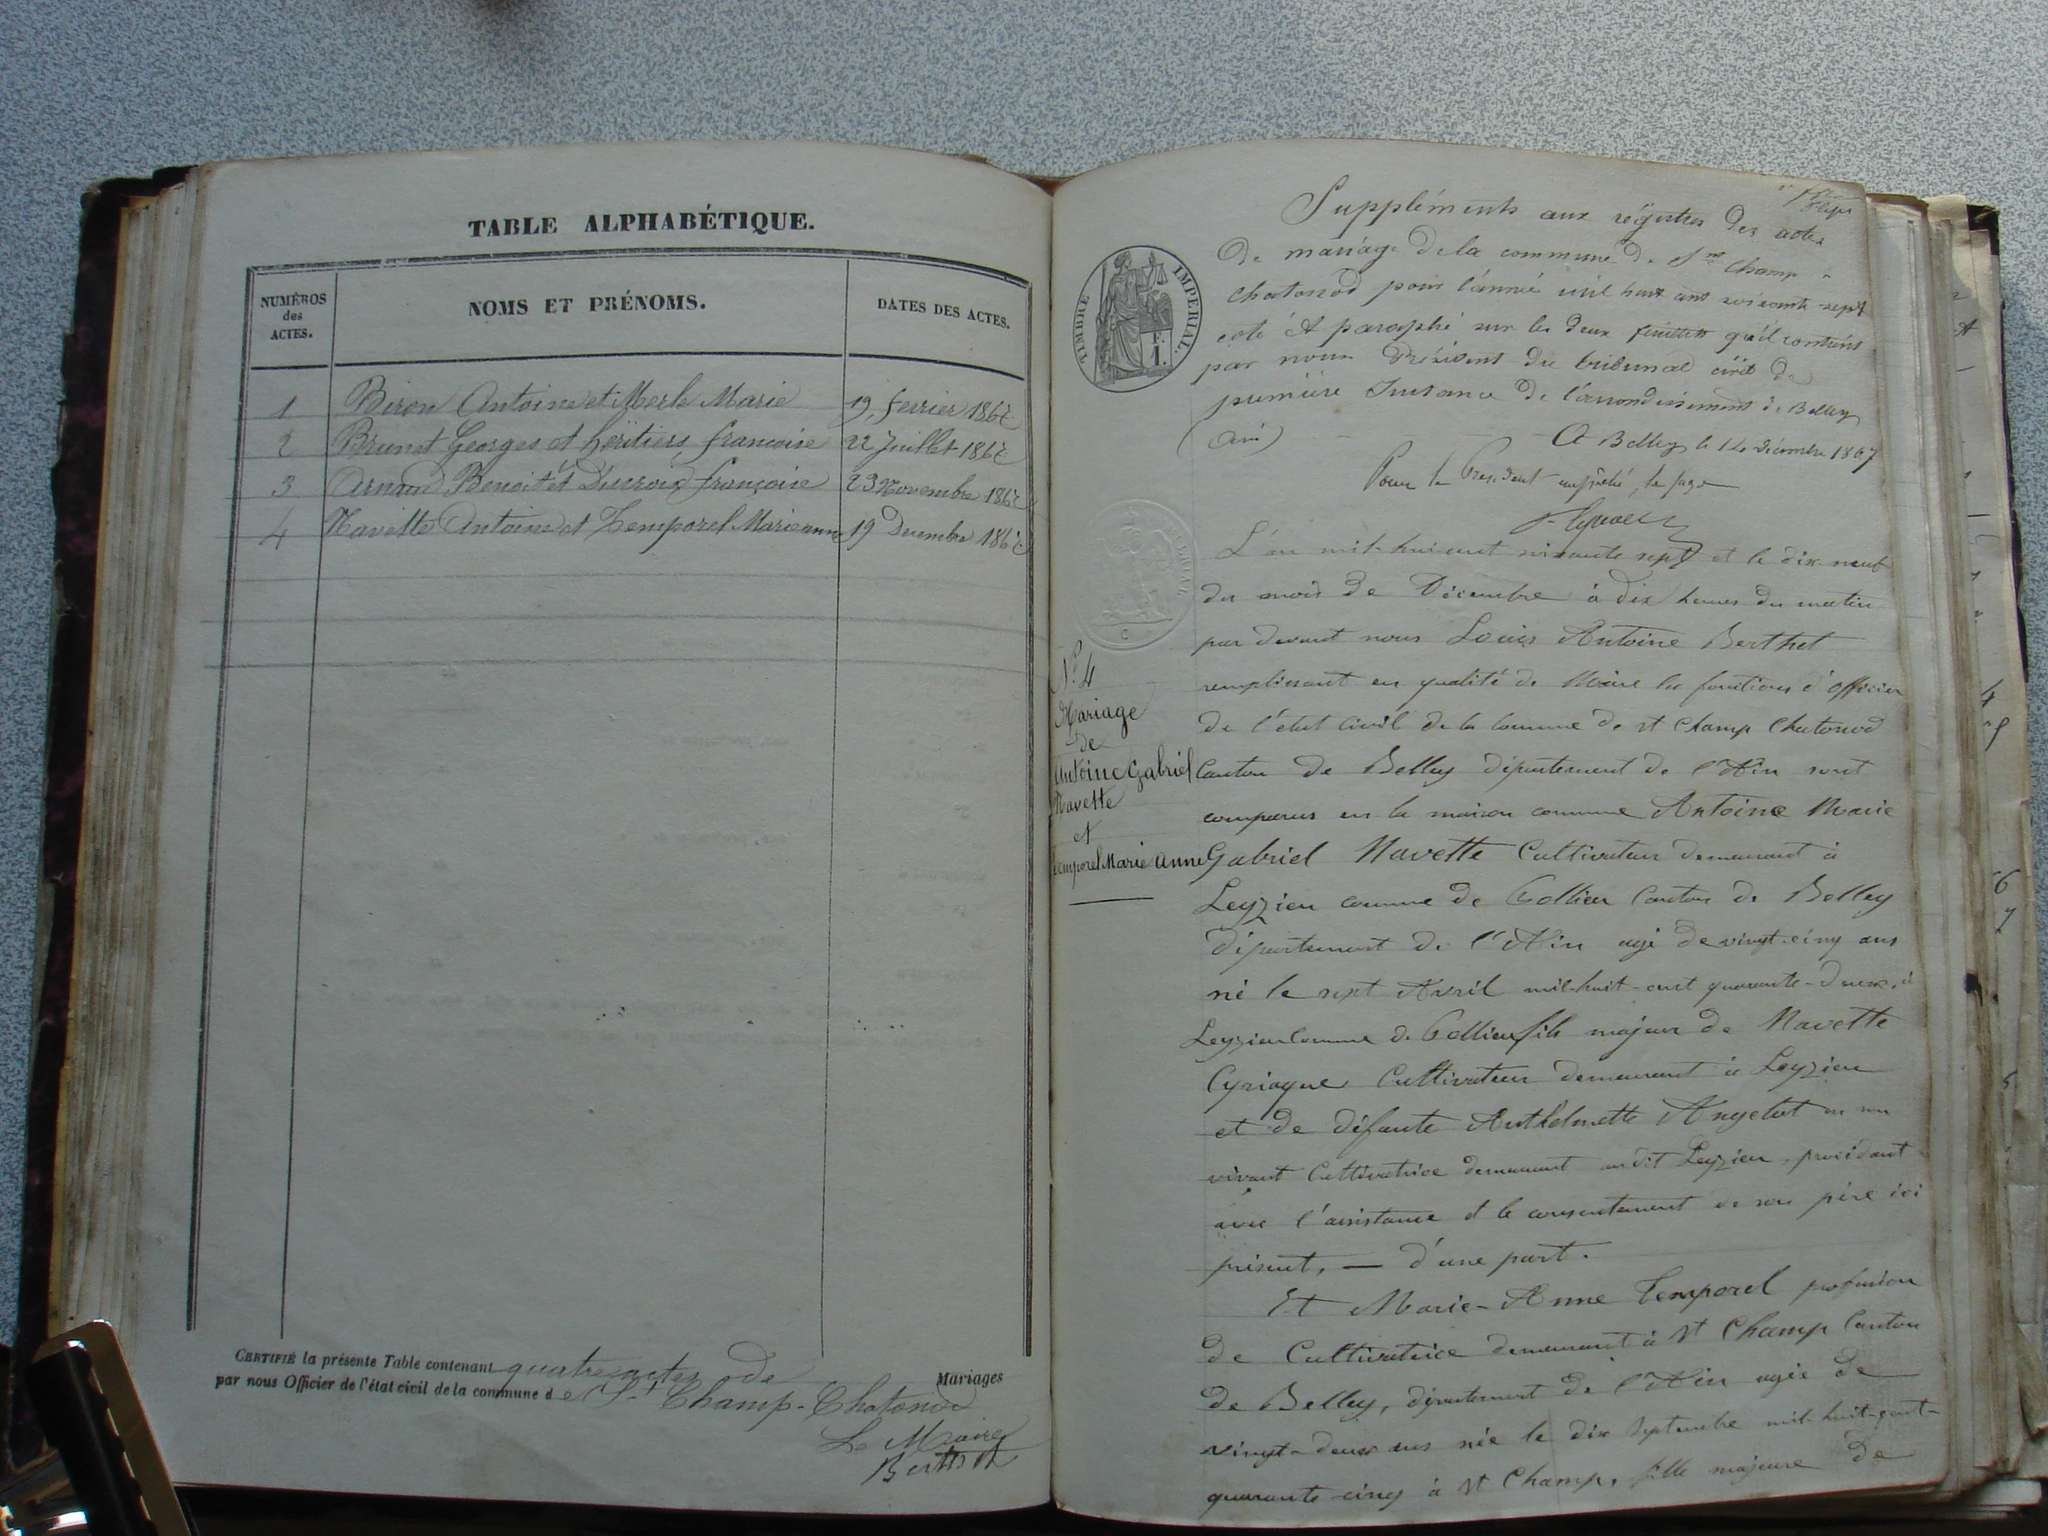 TABLE ALPHABÉTIQUE.
NUMÉROS des ACTES.
NOMS ET PRÉNOMS.
DATES DES ACTES.
1 Biron Antoine et Merle Marie 19, fevrier 1867
2 Brunet Georges et héritiers, francoise 22 Juillet 1867
3 Arnaud Benoit et Ducroix françoise 23 Novembre 1867
4 Navette Antoine et Temporel Marie anne 19 Decembre 1867
CERTIFIÉ la présente Table contenant quatre actes de Mariages
par nous Officier de l'état civil de la commune de St Champ-Chatonod
Le Maire
Berthet
Suppléments aux régistres des actes
de mariage de la commune de St Champ-
chatonod pour l'année mil huit cent soixante-sept
coté et paraphé sur les deux feuillets qu'il contient
par nous Président du tribunal civil de
première Instance de l'arrondissement de Belley
(Ain) A Belley le 14 décembre 1867
Pour le Président empêché, le juge
TIMBRE IMPERIAL.
1 F.
L'an mil-huit-cent soixante sept et le dix neuf
du mois de Décembre à dix heures du matin
par devant nous Louis Antoine Berthet
remplissant en qualité de Maire les fonctions d'officier
de l'état civil de la commune de St Champ Chatonod
Canton de Belley département de l'Ain sont
comparus en la maison commune Antoine Marie
Gabriel Navette Cultivateur demeurant à
Leyzieu comune de Collieu Canton de Belley
département de l'Ain agé de vingt-cinq ans
né le sept Avril mil-huit-cent quarante-deux, à
Leyzieu Comune de Collieu fils majeur de Navette
Cyriaque Cultivateur demeurant à Leyzieu
et de défunte Anthelmette Angelot en son
vivant Cultivatrice demeurant au dit Leyzieu, procédant
avec l'assistance et le consentement de son père ici
présent, — d'une part.
Et Marie-Anne Temporel profession
de Cultivatrice demeurant à St Champ Canton
de Belley, département de l'Ain agée de
vingt-deux ans née le dix Septembre mil-huit-cent-
quarante-cinq à St Champ, fille majeure de
N° 4
Mariage
de
Antoine Gabriel
Navette
et
Temporel Marie Anne